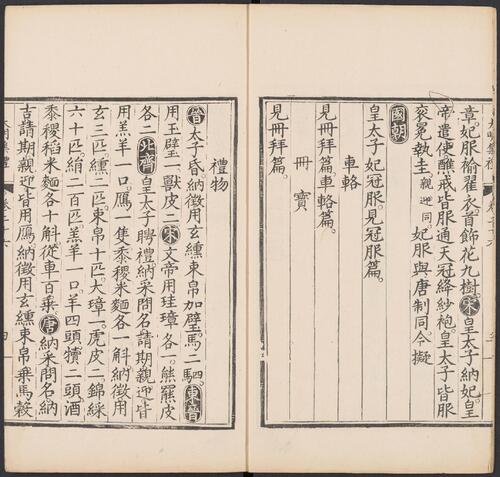 章妃服褕翟衣首飾花九樹宋皇太子納妃皇
帝遣使醮戒皆服通天冠絳紗袍皇太子皆服
袞冕執圭親迎同妃服與唐制同今擬
國朝
皇太子妃冠服見冠服篇
車輅
見冊拜篇車輅篇
冊寶
見冊拜篇
禮物
晉太子昏納徵用玄纁束帛加璧馬二駟東晉
用玉璧一獸皮二宋文帝用珪璋各一熊羆皮
各二北齊皇太子聘禮納采問名請期親迎皆
用羔羊一口鴈一隻黍稷米麵各一斛納徵用
玄三匹纁二匹束帛十匹大璋一虎皮二錦綵
六十匹絹二百匹羔羊一口羊四頭犢二頭酒
黍稷稻米麵各十斛從車百乘唐納采問名納
吉請期親迎皆用鴈納徵用玄纁束帛乘馬穀